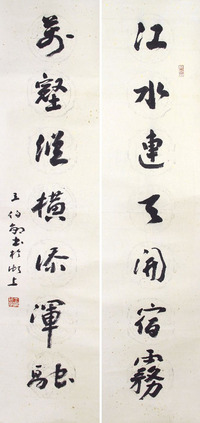 江水連天開宿霧
萬壑縱橫添渾融
王伯敏書於湖上